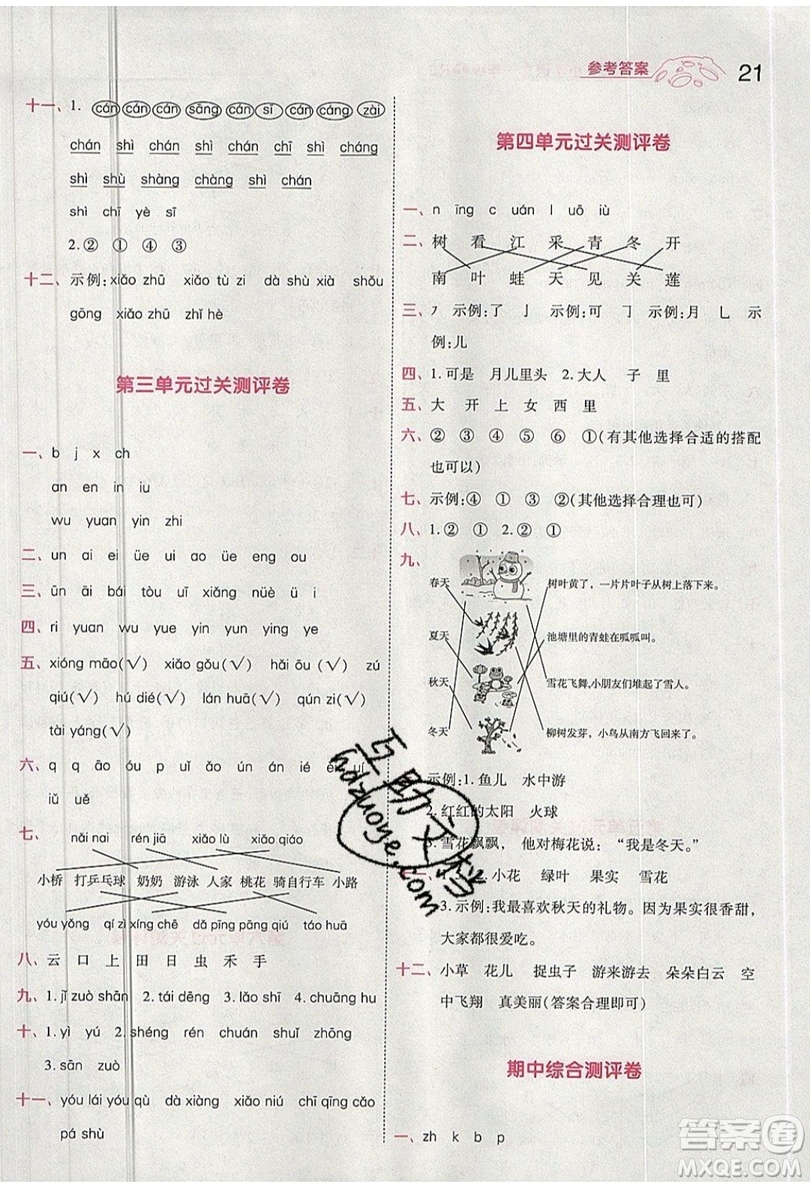 参考答案 21
十一、1. cán cán cán sāng cán sī cán cáng zài
chán shì chán shì chán shì chán shì
shì shù shàng chàng shì chàng shì
shì chī yè sī
2.② ① ④ ③
十二、示例:xiǎo zhū xiǎo tù zi dà shù xià shǒu
gōng xiǎo zhū zhǐ hè
第三单元过关测评卷
一、b j x ch
an en in iu
wu yuan yin zhi
二、un ai ei üe ui ao üe eng ou
三、ūn āi bái tòu uī xiǎng nüè üí
四、ri yuan wu yin yun ying ye
五、xióng māo(√) xiǎo gǒu(√) hǎi ōu(√) zú
qiú(√) hú dié(√) lán huā(√) qún zi(√)
tài yáng(√)
六、q q áo óu p uǐ ǎi úo én uì áo
iǔ uě
七、nǎi nai rén jiā xiǎo lù xiǎo qiáo
小桥 打乒乓球 奶奶 游泳 人家 桃花 骑自行车 小路
yóu yǒng qí zì xíng chē dǎ pīng pāng qiú táo huā
八、云 口 上 田 日 虫 禾 手
九、1.jǐ zuò shān 2.tái dēng 3.lǎo shī 4.chuāng hu
十、1.yì yú 2.shéng rén chuán shuǐ zhǒng
3.sān zuò
十一、yóu lái yóu qù dà xiàng xiǎo niǎo chī qīng cǎo
pá shù
第四单元过关测评卷
一、n īng c uán l uō iù
二、树 看 江 采 青 冬 开
南 叶 蛙 天 见 关 莲
三、㇇ 示例:了 亅 示例:可 示例:月 乚 示
例:儿
四、1.可是 月儿里头 2.大人 子 里
五、大 开 上 女 西 里
六、② ③ ④ ⑤ ⑥ ①(有其他选择合适的搭配
也可以)
七、示例:④ ① ③ ②(其他选择合理也可)
八、1.② ① 2.② ①
九、
春天 树叶黄了,一片片叶子从树上落下来。
夏天 池塘里的青蛙在呱呱叫。
秋天 雪花飞舞,小朋友们堆起了雪人。
冬天 柳树发芽,燕子从南方飞回来了。
示例:1.鱼儿 水中游
2.红红的太阳 火球
3.雪花飘飘, 他对梅花说:“我是冬天。”
小花 绿叶 果实 雪花
3.示例:我最喜欢秋天的礼物。因为水果很香甜,
大家都很爱吃。
十二、小草 花儿 捉虫子 游来游去 朵朵白云 空
中飞翔 真美丽(答案合理即可)
期中综合测评卷
一、zh k b p
互助文档
hdzuoye.com
答案圈
MXQE.COM